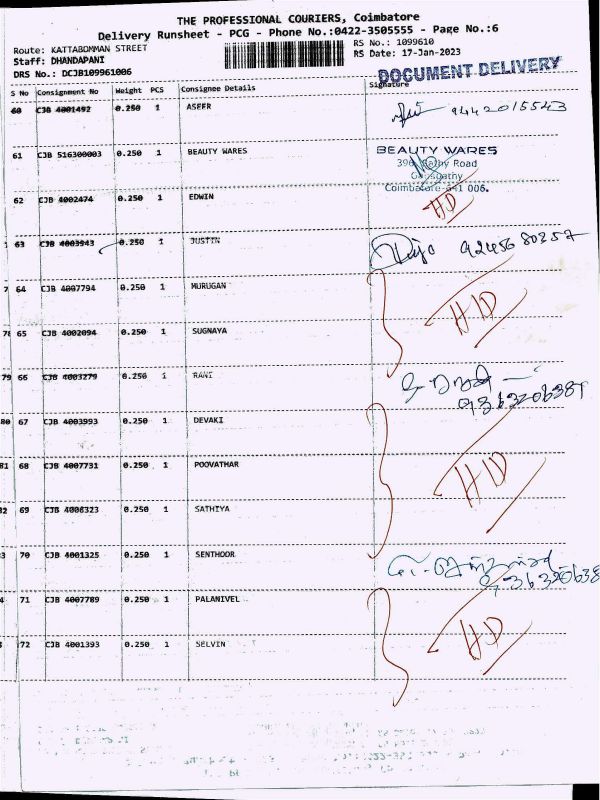 THE PROFESSIONAL COURIERS, Coimbatore
Delivery Runsheet - PCG - Phone No.:0422-3505555 - Page No.:6
Route: KATTABOMMAN STREET RS No.: 1099610
Staff: DHANDAPANI RS Date: 17-Jan-2023
DRS No.: DCJB109961006
DOCUMENT DELIVERY
S No Consignment No Weight PCS Consignee Details Signature
60 CJB 4001492 0.250 1 ASEER 9442015543
61 CJB 516300003 0.250 1 BEAUTY WARES
BEAUTY WARES
Road
Coimbatore-641 006.
62 CJB 4002474 0.250 1 EDWIN HD
63 CJB 4003943 0.250 1 JUSTIN
64 CJB 4007794 0.250 1 MURUGAN HD
78 65 CJB 4002094 0.250 1 SUGNAYA
79 66 CJB 4003279 0.250 1 RANI
80 67 CJB 4003993 0.250 1 DEVAKI
81 68 CJB 4007731 0.250 1 POOVATHAR HD
69 CJB 4006323 0.250 1 SATHIYA
70 CJB 4001325 0.250 1 SENTHOOR
71 CJB 4007789 0.250 1 PALANIVEL
72 CJB 4001393 0.250 1 SELVIN HD